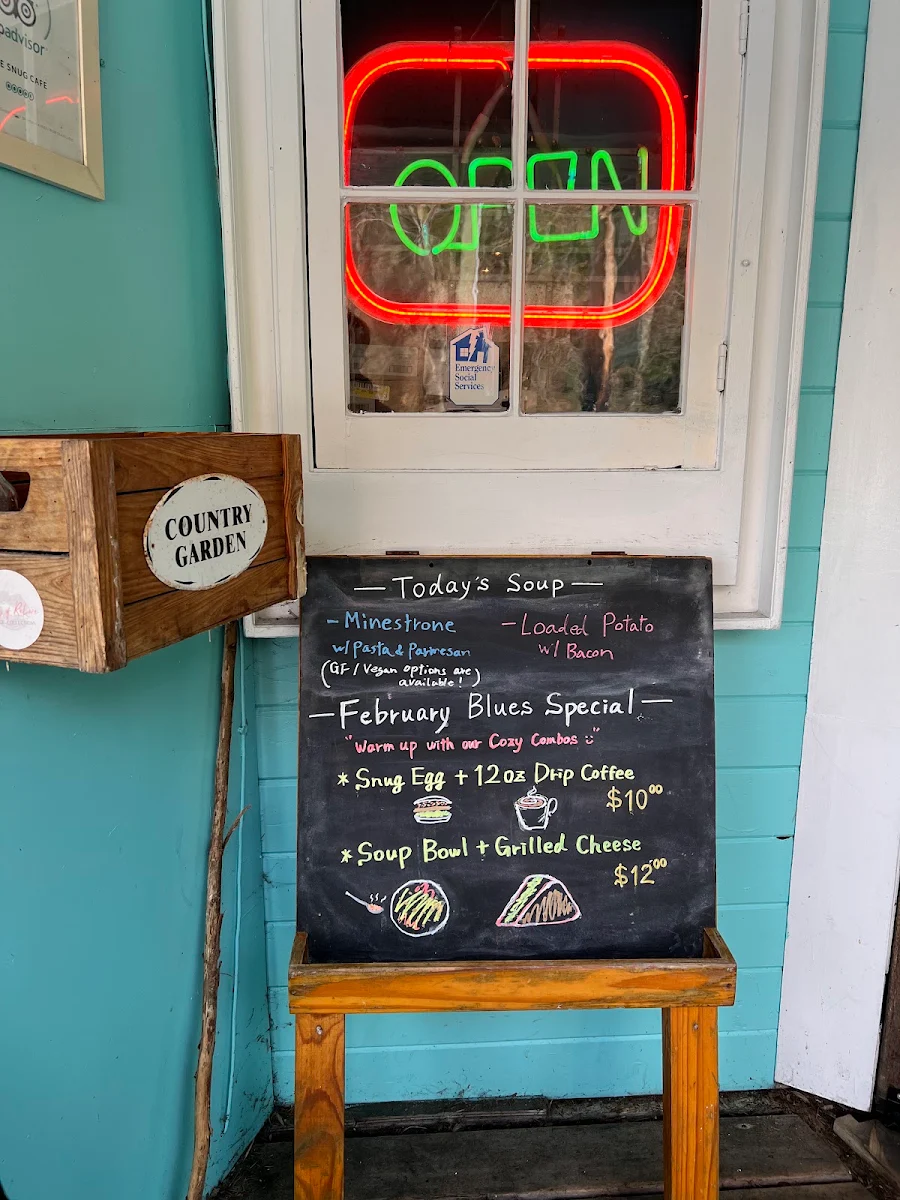 SNUG CAFE
OPEN
Emergency
Social
Services
COUNTRY
GARDEN
— Today's Soup —
- Minestrone
w/ Pasta & Parmesan
(GF / Vegan options are
available! )
- Loaded Potato
w/ Bacon
— February Blues Special —
"Warm up with our Cozy Combos ü"
* Snug Egg + 12oz Drip Coffee
$10⁰⁰
* Soup Bowl + Grilled Cheese
$12⁰⁰